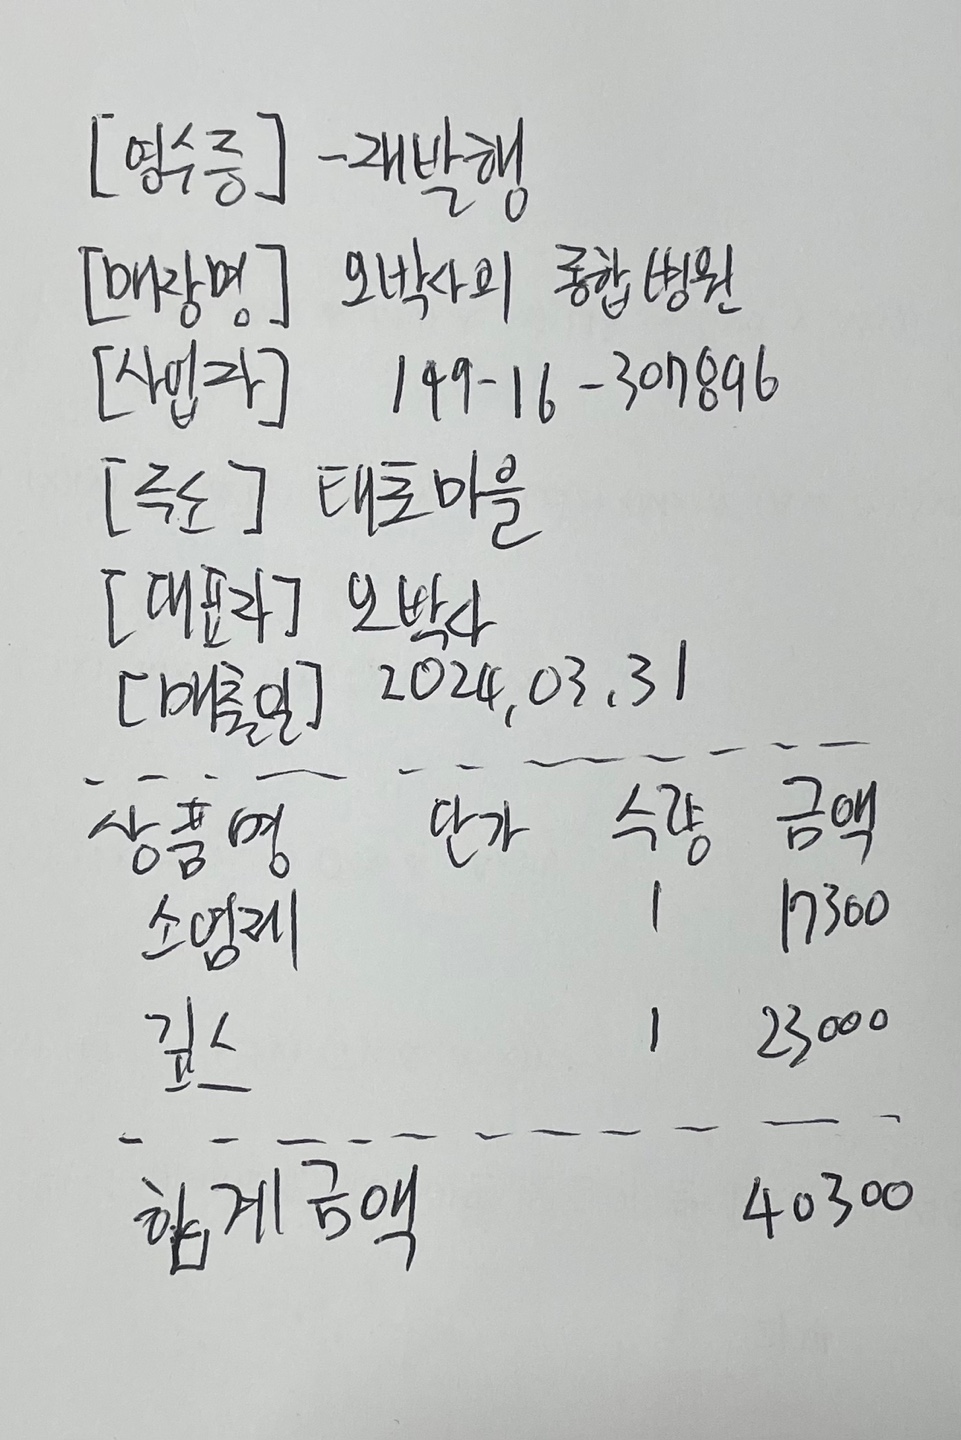 [영수증] -재발행
[매장명] 오박사의 종합병원
[사업자] 149-16-307896
[주소] 태토마을
[대표자] 오박사
[매출일] 2024.03.31
상품명 단가 수량 금액
소염제 1 17300
깁스 1 23000
합계금액 40300